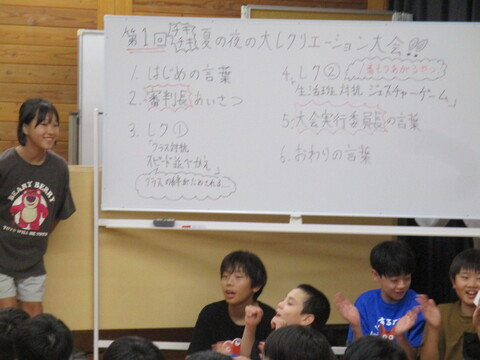 第1回 チキチキ 夏の夜の大レクリエーション大会!!
1. はじめの言葉
2. 審判長あいさつ
3. レク①
「クラス対抗
スピード並べかえ」
4. レク②
「生活班対抗 ジェスチャーゲーム」
5. 大会実行委員長の言葉
6. おわりの言葉
BEARY BEARY